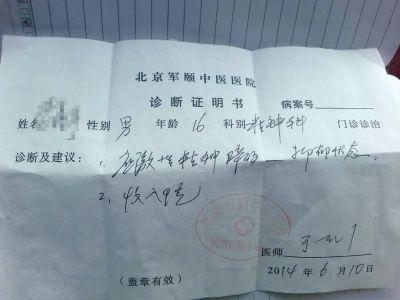 北京军颐中医医院
诊断证明书
病案号
姓名 性别 男 年龄 16 科别 精神科 门诊诊治
诊断及建议：1、应激性精神障碍——抑郁状态。
2、收入院
医师
(盖章有效)
2014年6月10日